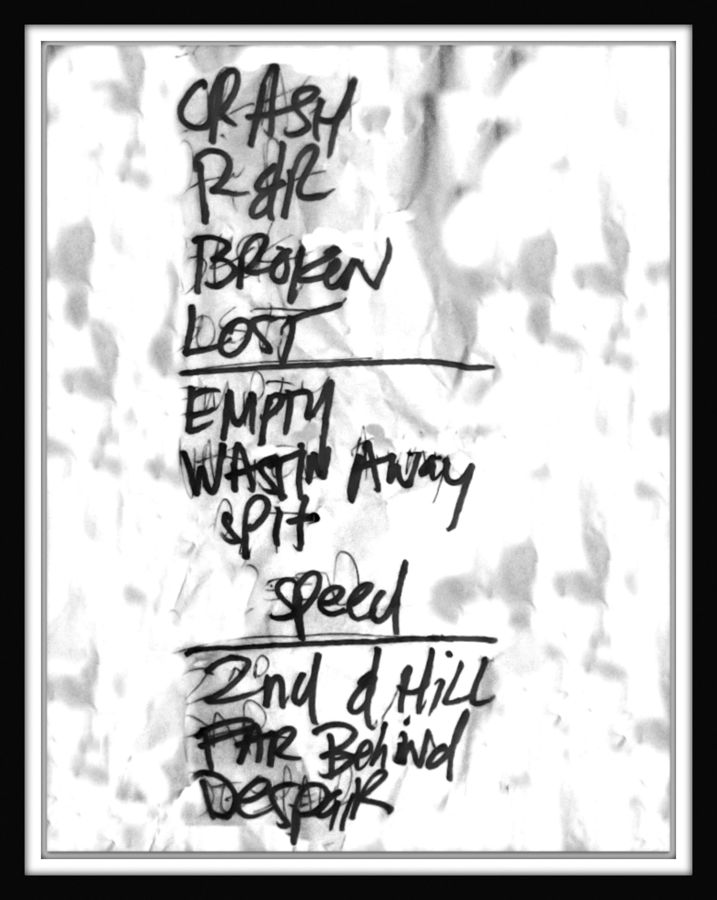 CRASH
R&R
BROKEN
LOST
EMPTY
WASTIN AWAY
Spit
Speed
2nd d Hill
FAR Behind
Despair